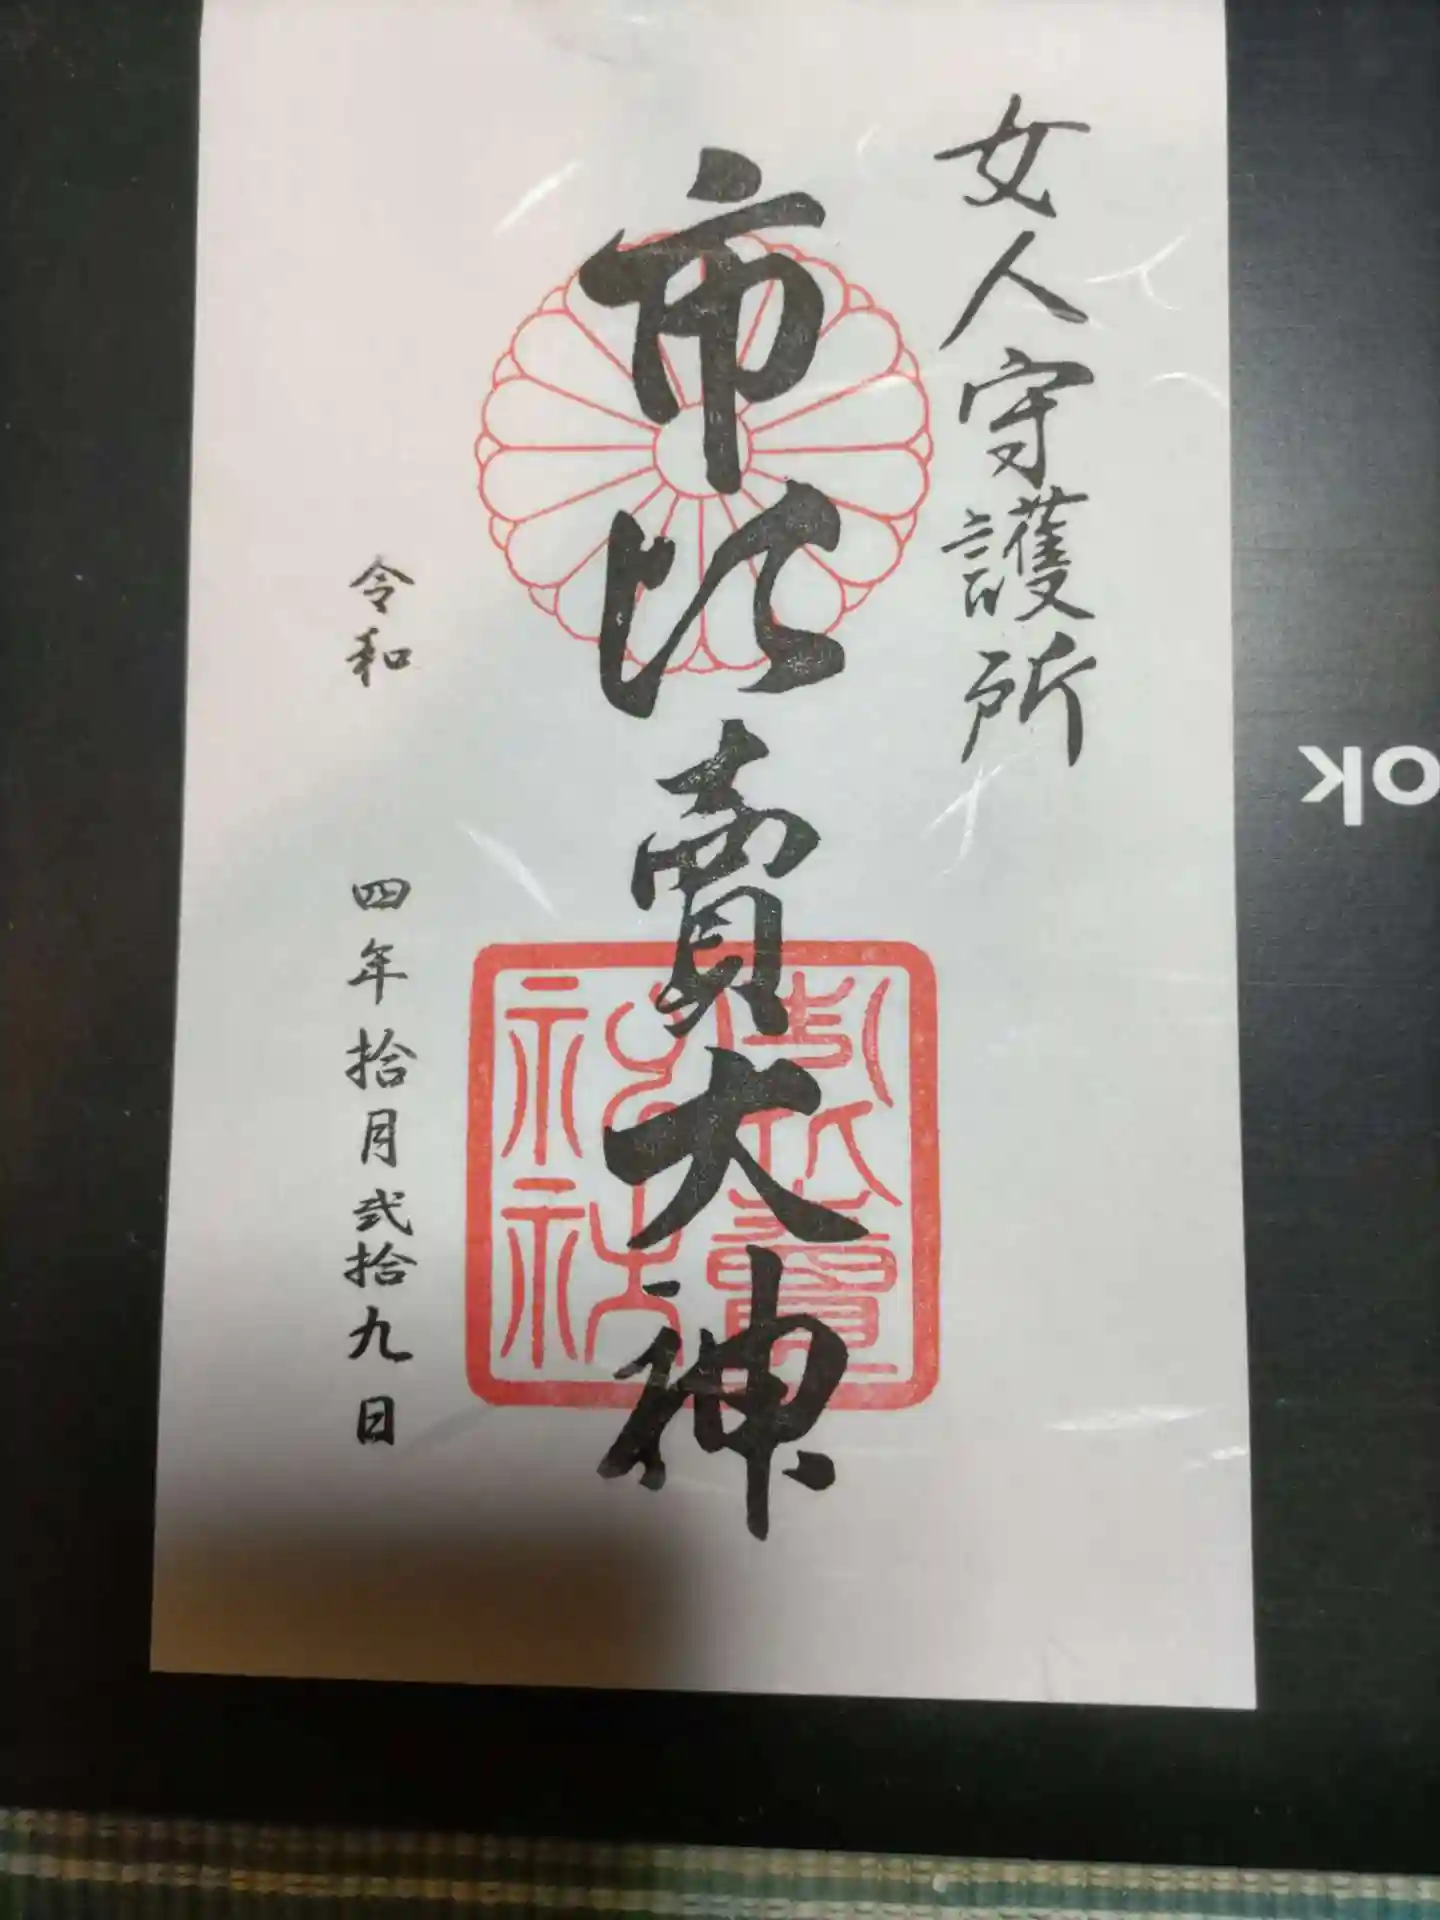 女人守護所
市比賣大神
市比賣神社
令和 四年拾月弐拾九日
ok